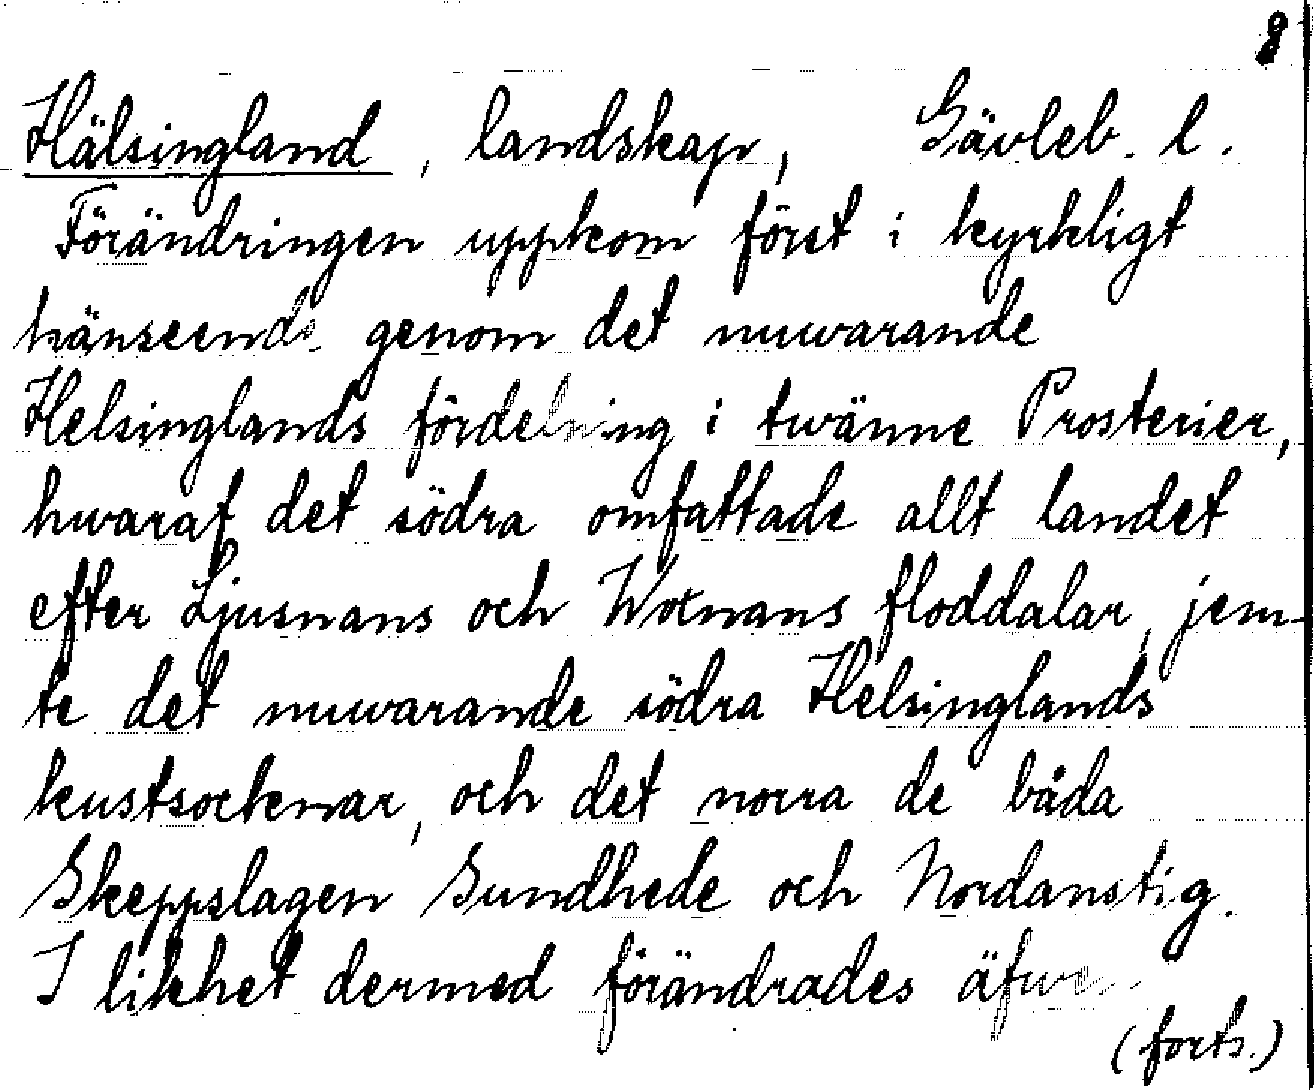 8
Hälsingland, landskap, Gävleb. l.
Förändringen uppkom först i kyrkligt
hänseende genom det nuwarande
Helsinglands fördelning i twänne Prosterier,
hwaraf det södra omfattade allt landet
efter Ljusnans och Woxnans floddalar, jem-
te det nuwarande södra Helsinglands
kustsocknar, och det norra de båda
Skeppslagen Sundhede och Nordanstig.
I likhet dermed förändrades äfwen
(forts.)